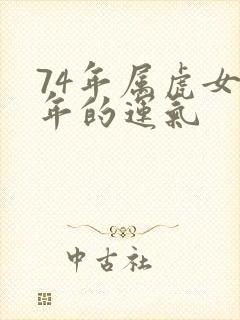 74年属虎女
年的运气
中古社